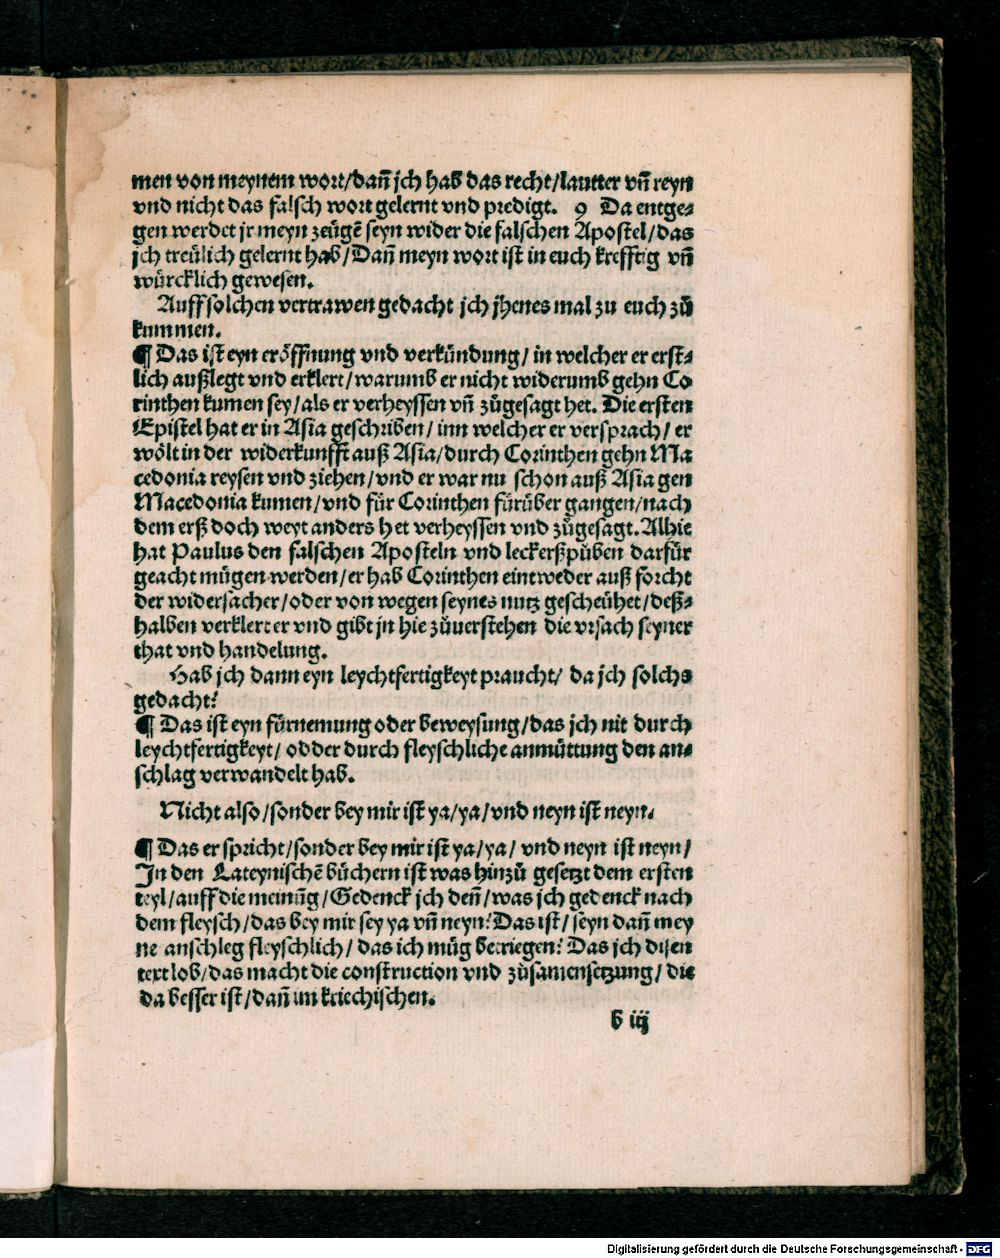 men von meynem wort/dañ jch hab das recht/lautter vñ reyn
vnd nicht das falsch wort gelernt vnd predigt. 9 Da entge⸗
gen werdet jr meyn zeügẽ seyn wider die falschen Apostel/das
jch treülich gelernt hab/Dañ meyn wort ist in euch krefftig vñ
würcklich gewesen.
Auff solchen vertrawen gedacht jch jhenes mal zu euch zů
kummen.
¶ Das ist eyn eröffnung vnd verkündung/ in welcher er erst⸗
lich außlegt vnd erklert/warumb er nicht widerumb gehn Co
rinthen kumen sey/als er verheyssen vñ zůgesagt het. Die ersten
Epistel hat er in Asia geschriben/ inn welcher er versprach/ er
wölt in der widerkunfft auß Asia/durch Corinthen gehn Ma
cedonia reysen vnd ziehen/vnd er war nu schon auß Asia gen
Macedonia kumen/vnd für Corinthen fürüber gangen/nach
dem erß doch weyt anders het verheyssen vnd zůgesagt. Alhie
hat Paulus den falschen Aposteln vnd leckerßpůben darfür
geacht mügen werden/er hab Corinthen eintweder auß forcht
der widersacher/oder von wegen seynes nutz gescheühet/deß⸗
halben verklert er vnd gibt jn hie zůuerstehen die vrsach seyner
that vnd handelung.
Hab jch dann eyn leychtfertigkeyt praucht/ da jch solchs
gedacht?
¶ Das ist eyn fürnemung oder beweysung/das jch nit durch
leychtfertigkeyt/ odder durch fleyschliche anmůttung den an⸗
schlag verwandelt hab.
Nicht also/sonder bey mir ist ya/ya/vnd neyn ist neyn.
¶ Das er spricht/sonder bey mir ist ya/ya/ vnd neyn ist neyn/
In den Lateynischẽ bůchern ist was hinzů gesetzt dem ersten
teyl/auff die meinũg/Gedenck jch deñ/was jch gedenck nach
dem fleysch/das bey mir sey ya vñ neyn? Das ist/ seyn dañ mey
ne anschleg fleyschlich/ das ich můg betriegen? Das jch disen
text lob/das macht die construction vnd zůsamensetzung/ die
da besser ist/dañ im kriechischen.
b iij
Digitalisierung gefördert durch die Deutsche Forschungsgemeinschaft - DFG